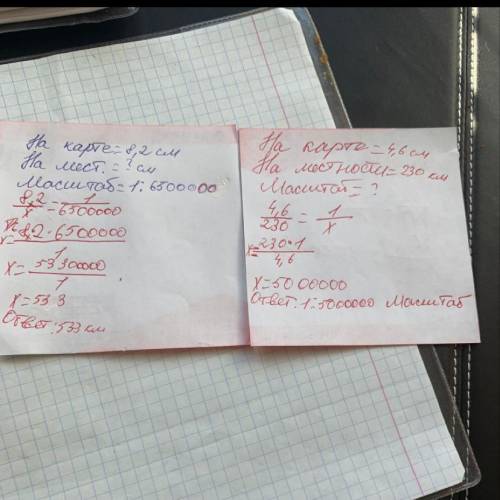 На карте = 8,2 см
На мест. = ? см
Масштаб = 1: 6500000
8,2/x = 1/6500000
x = 8,2 · 6500000/1
x = 53300000/1
x = 533
Ответ: 533 км
На карте = 4,6 см
На местности = 230 км
Масштаб = ?
4,6/230 = 1/x
x = 230·1/4,6
x = 5000000
Ответ: 1:5000000 Масштаб